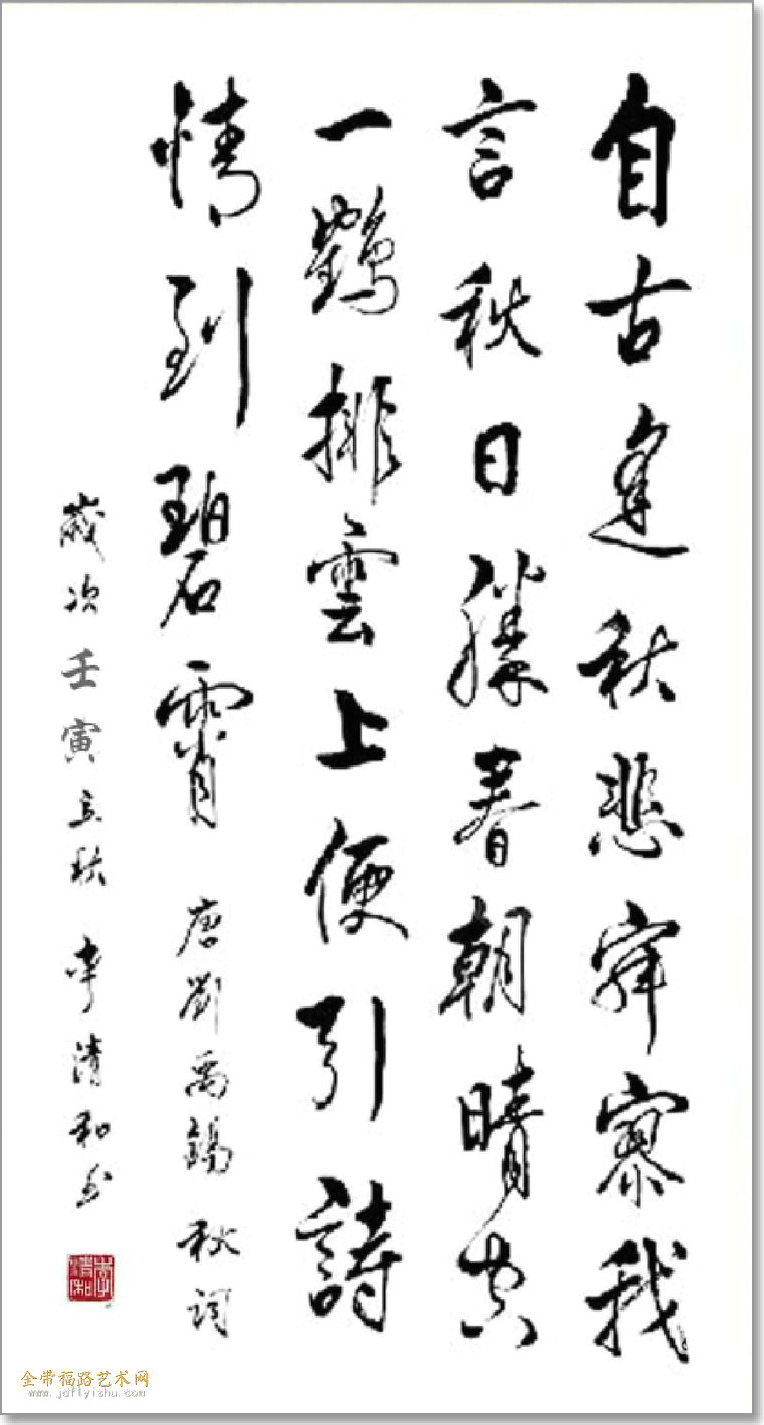 自古逢秋悲寂寥我
言秋日勝春朝晴空
一鶴排雲上便引詩
情到碧霄 唐劉禹錫秋詞
歲次壬寅立秋 李清和书
李清和
金带福路艺术网
www.jdflyishu.com